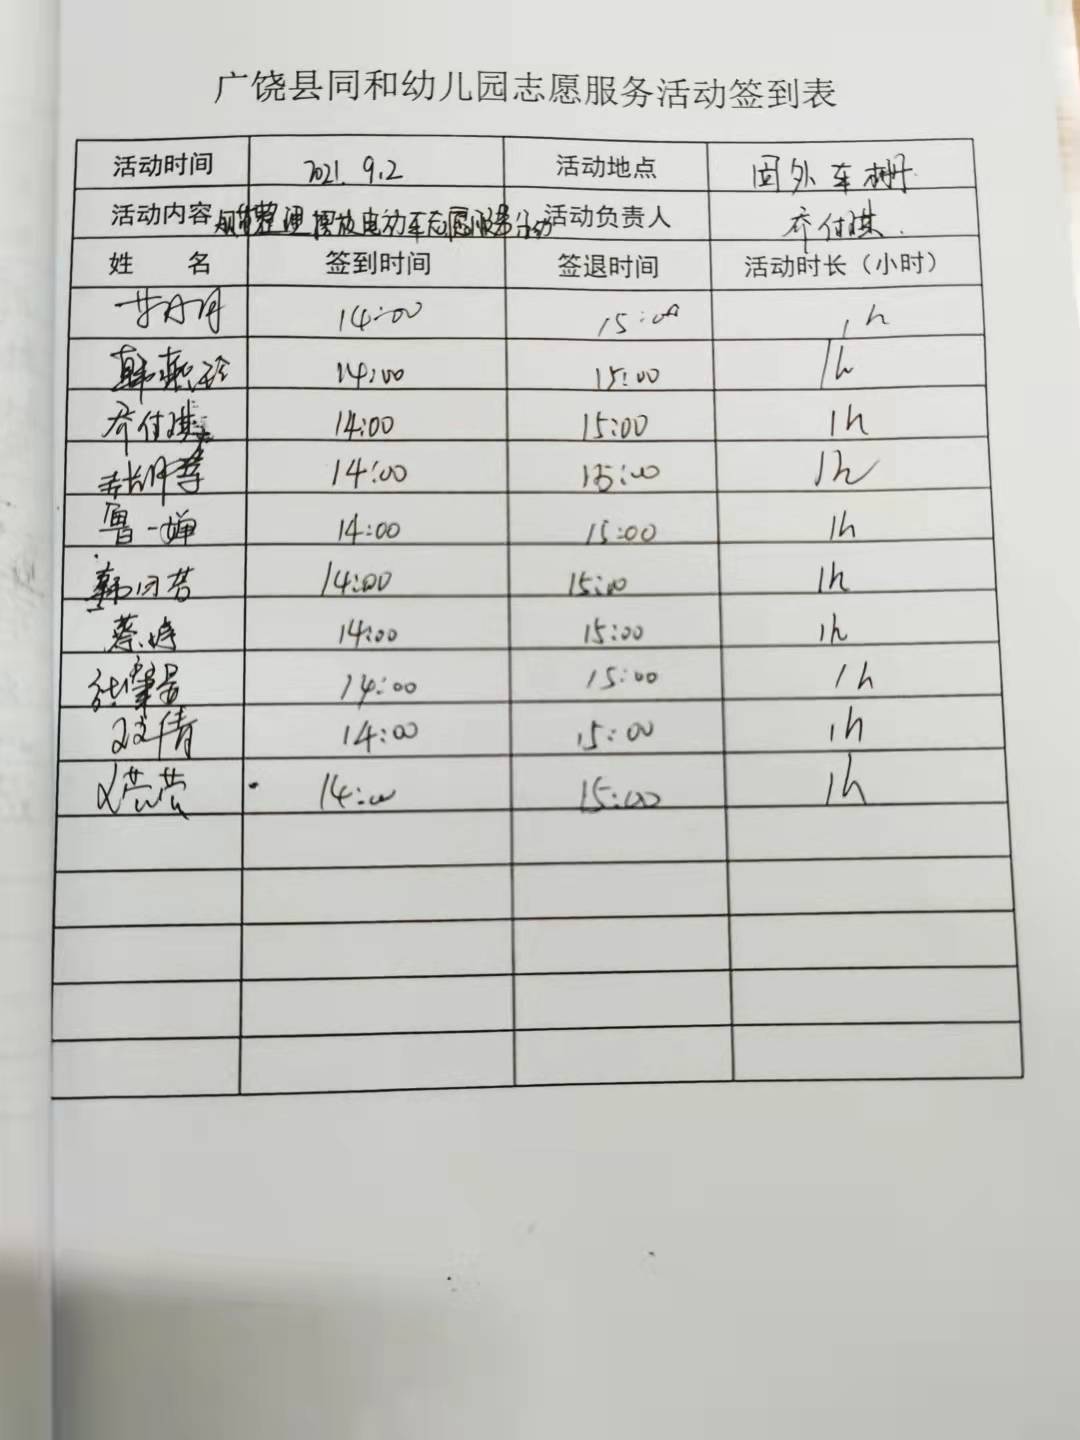 广饶县同和幼儿园志愿服务活动签到表
活动时间 2021.9.2 活动地点 园外车棚
活动内容 整理摆放电动车志愿服务活动 活动负责人 齐付琪.
姓 名 签到时间 签退时间 活动时长（小时）
14:00 15:00 1h
韩燕玲 14:00 15:00 1h
齐付琪 14:00 15:00 1h
14:00 15:00 1h
曹一婵 14:00 15:00 1h
韩 14:00 15:00 1h
蔡婷 14:00 15:00 1h
14:00 15:00 1h
倩 14:00 15:00 1h
14:00 15:00 1h